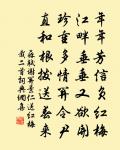 年年芳信負紅梅
江畔垂垂又欲開
珍重多情關令尹
直和根撥送春來
蘇軾謝關景仁送紅梅
栽二首詞典網喜